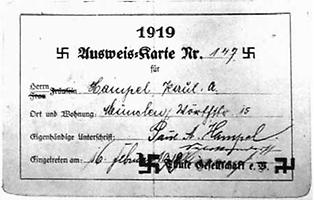 1919
Ausweis-Karte Nr. 147
für
Herrn Fräulein Hampel, Paul A.
Frau
Ort und Wohnung: München, 15
Eigenhändige Unterschrift: Paul A. Hampel
Eingetreten am 16. Thule Gesellschaft e. V.